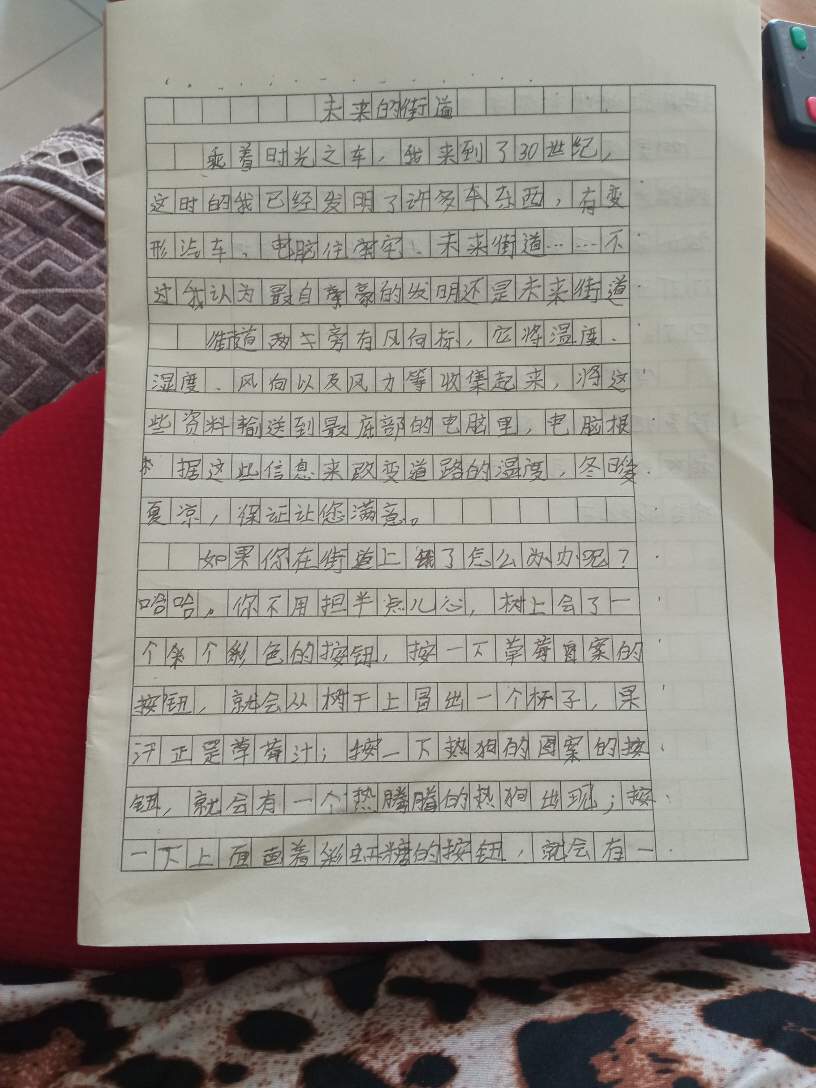 未来的街道
乘着时光之车，我来到了30世纪，
这时的我已经发明了许多车东西，有变
形汽车、电脑住、未来街道……不
过我认为最自豪的发明还是未来街道
街道两旁有风向标，它将温度、
湿度、风向以及风力等收集起来，将这
些资料输送到最底部的电脑里，电脑根
据这些信息来改变道路的温度，冬暖
夏凉，保证让您满意。
如果你在街道上饿了怎么办办呢？
哈哈，你不用担半点儿心，树上会了一
个个彩色的按钮，按一下草莓图案的
按钮，就会从树干上冒出一个杯子，果
汁正是草莓汁；按一下热狗的图案的按
钮，就会有一个热腾腾的热狗出现；按
一下上面画着彩虹糖的按钮，就会有一